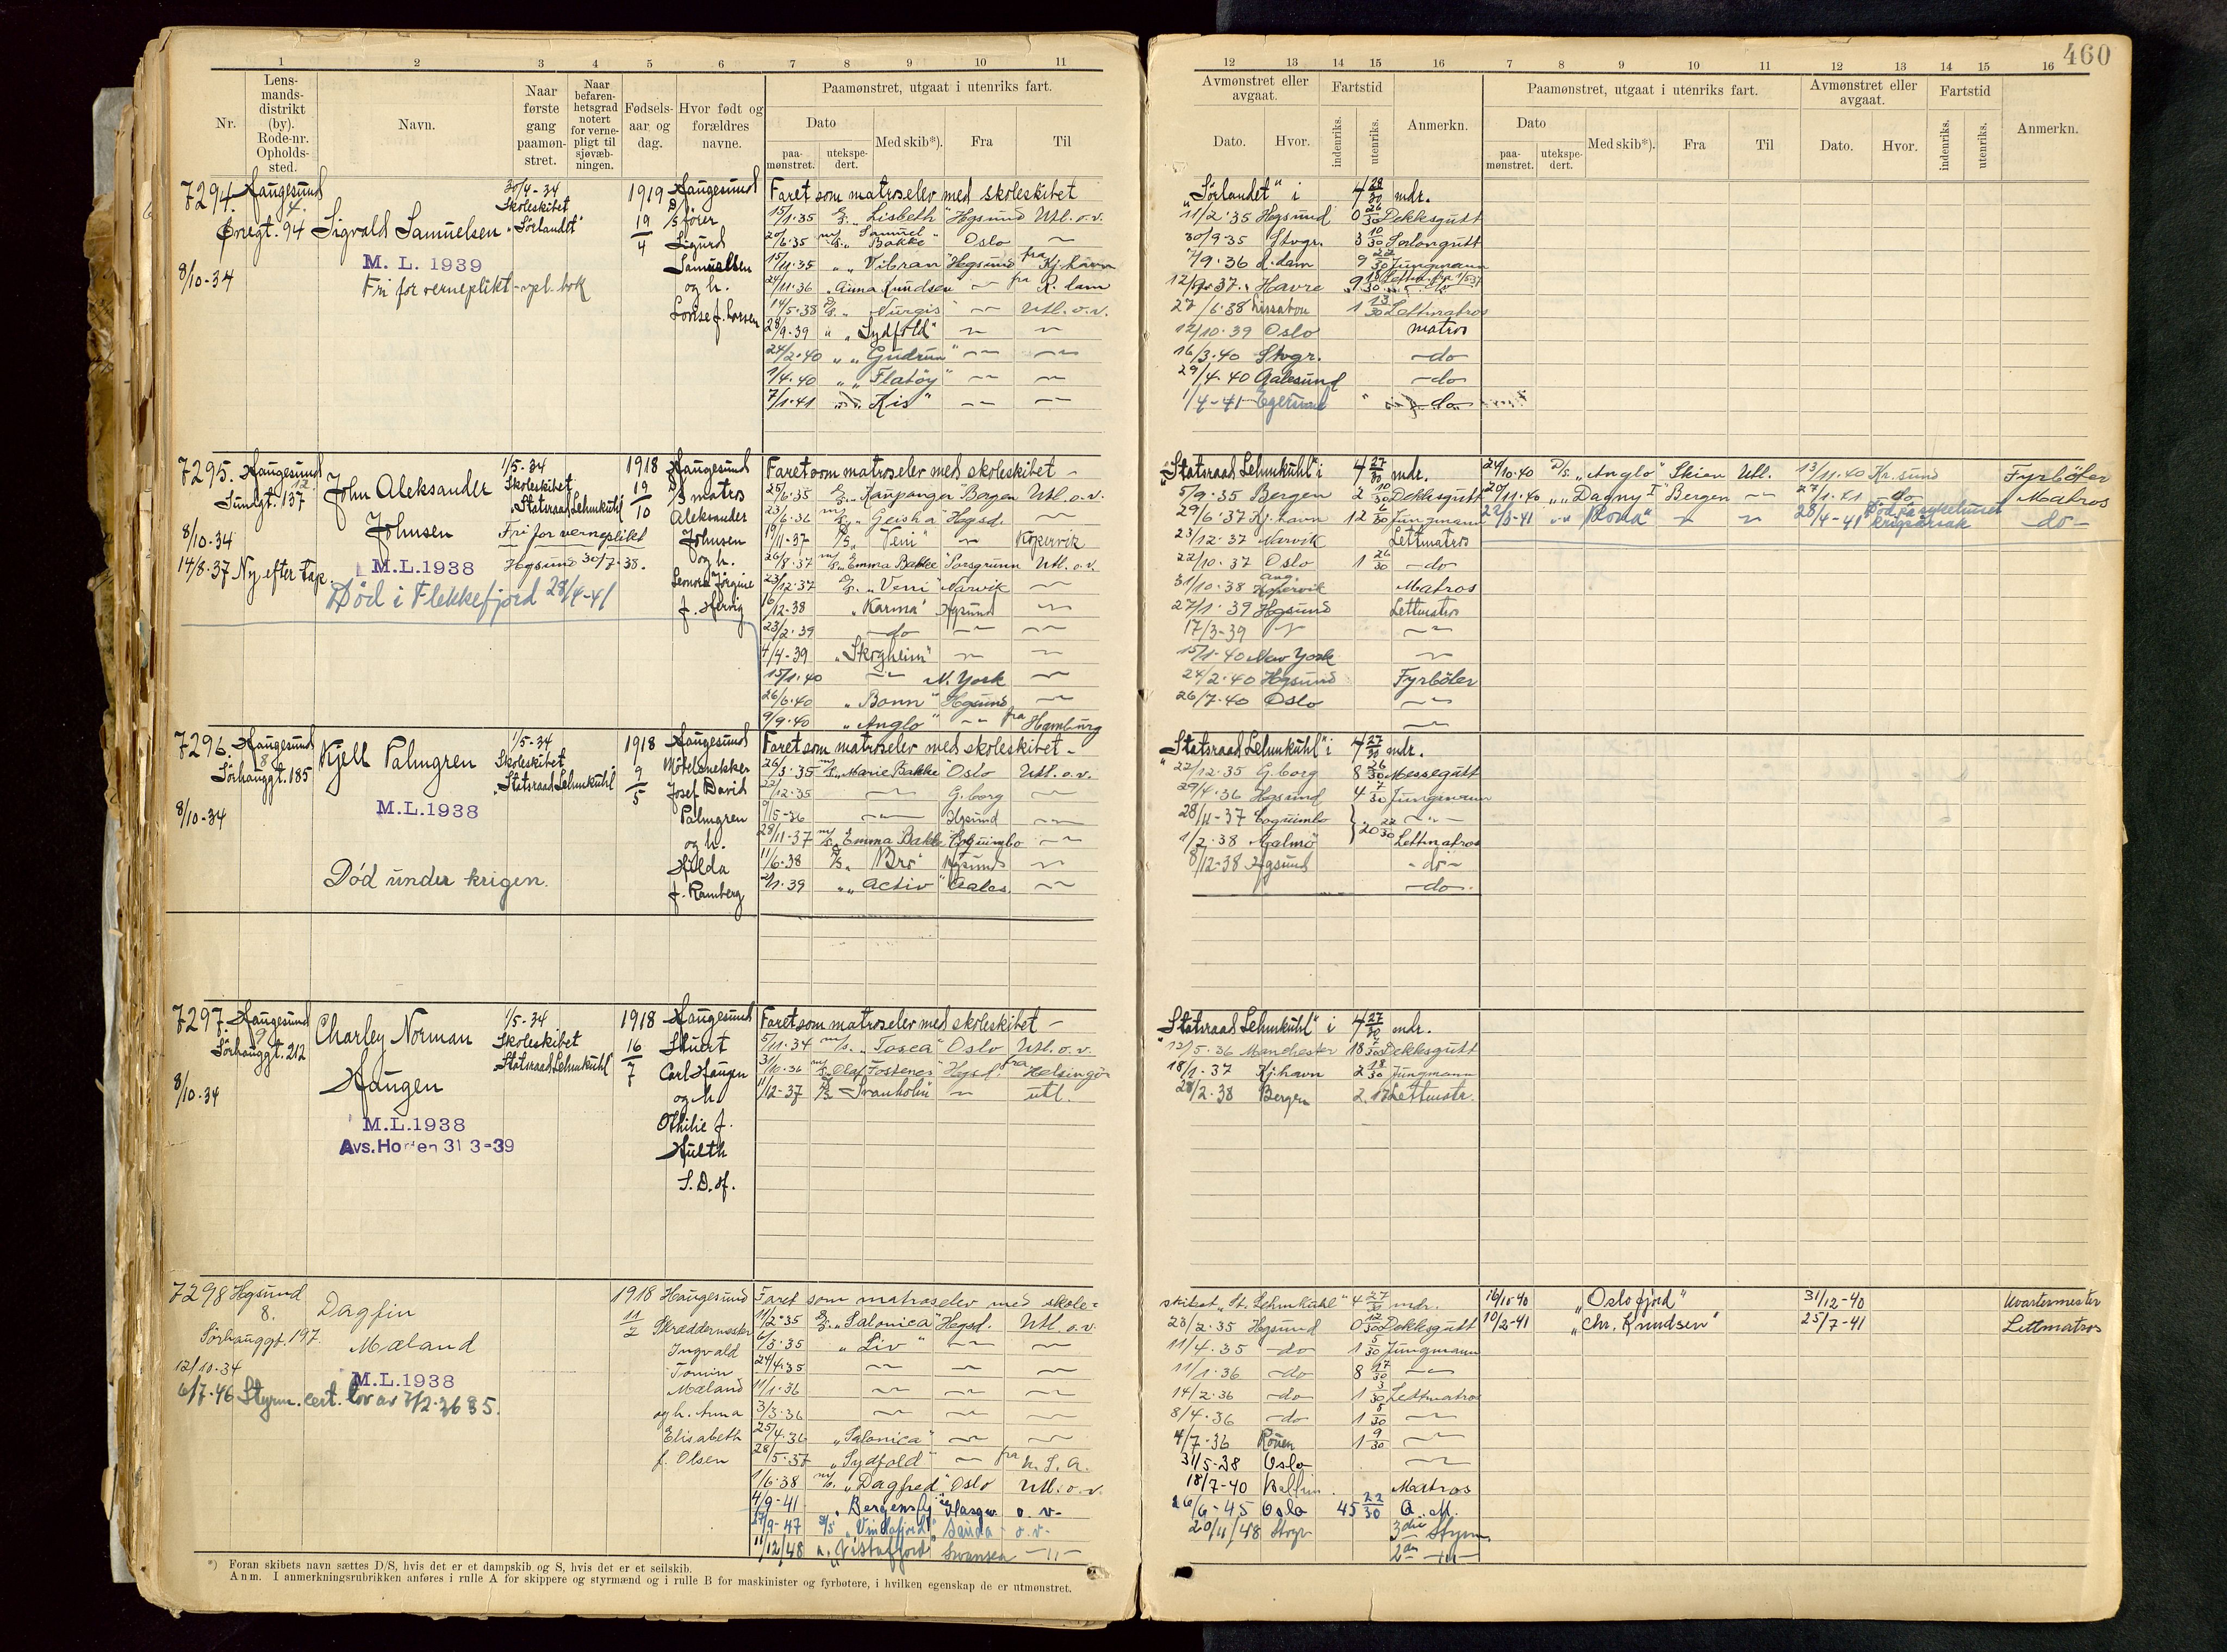 460
1 2 3 4 5 6 7 8 9 10 11
Nr.
Lens-
mands-
distrikt
(by).
Rode-nr.
Opholds-
sted.
Navn.
Naar
første
gang
paamøn-
stret.
Naar
befaren-
hetsgrad
notert
for verne-
pligt til
sjøvæb-
ningen.
Fødsels-
aar og
dag.
Hvor født og
forældres
navne.
Paamønstret, utgaat i utenriks fart.
Dato
paa-
mønstret.
utekspe-
dert.
Med skib*).
Fra
Til
12 13 14 15 16 7 8 9 10 11 12 13 14 15 16
Avmønstret eller
avgaat.
Fartstid
Dato. Hvor.
indenriks.
utenriks.
Anmerkn.
Paamønstret, utgaat i utenriks fart.
Dato
paa-
mønstret.
utekspe-
dert.
Med skib*).
Fra
Til
Avmønstret eller
avgaat.
Fartstid
Dato. Hvor.
indenriks.
utenriks.
Anmerkn.
7294. Haugesund
4.
Øvregt. 94
8/10-34
Sigvald Samuelsen
M. L. 1939
Fri for verneplikt - vpl. bok
30/4-34
Skoleskibet
"Sörlandet"
1919
19/4
Haugesund
förer
Sigurd
Samuelsen
og h.
Lovise f. Larsen
Faret som matroselev med skoleskibet
15/1.35 "Lisbeth" Hgsund Utl. o. v.
20/6.35 "Samuel
Bakke" Oslo
15/11.35 "Vibran" Hgsund fra Kj.havn
24/11.36 "Anna Knudsen fra R.dam
14/5.38 "Nurgis" Utl. o. v.
28/9.39 "Sydfold"
24/2.40 "Gudrun"
1/4.40 "Flatöy"
7/1.41 "Kis"
"Sörlandet" i 4 28/30 mdr.
11/2.35 Hgsund 0 26/30 Dekksgutt
30/9.35 Stvgr. 3 10/30 Salongutt
7/9.36 R.dam 9 22/30 Jungmann
Havre
27/6.38 Lissabon 1 13/30 Lettmatros
12/10.39 Oslo matros
16/3.40 Stvgr. -do-
29/4.40 Aalesund -do-
1/4-41 Egersund -do-
7295. Haugesund
12.
Sundgt. 137
8/10-34
14/8-37 Ny efter tap.
John Aleksander
Johnsen
M.L.1938
Död i Flekkefjord 28/4-41
1/5-34
Skoleskibet
"Statsraad Lehmkuhl"
Fri for verneplikt
Hgsund 30/7-38.
1918
19/10
Haugesund
matros
Aleksander
Johnsen
og h.
Leonora Jörgine
f. Hervig
Faret som matroselev med skoleskibet -
25/6.35 "Kaupanger" Bergen Utl. o. v.
23/6.36 "Geisha" Hgsd.
19/11-37 "Veni" Kopervik
26/8.37 "Emma Bakke" Porsgrunn Utl. o. v.
23/12.37 "Veni" Narvik
16/12-38 "Karma" Hgsund
23/2.39 -do-
4/4-39 "Skogheim"
15/1.40 N. York
26/6.40 "Bonn" Hgsund
9/9.40 "Anglo" fra Hamburg
"Statsraad Lehmkuhl" i 4 27/30 mdr.
5/9.35 Bergen 2 10/30 Dekksgutt
29/6.37 Kj.havn 12 6/30 Jungmann
23/12.37 Narvik Lettmatros
22/10.37 Oslo 1 26/30 -do-
31/10.38 Kopervik Matros
27/1.39 Hgsund Lettmatros
17/3-39
15/1.40 New York
24/2.40 Hgsund Fyrböter
26/7.40 Oslo
24/10.40 D/S. "Anglo" Skien Utl. 13/11.40 Kr.sund Fyrböter
20/11.40 "Dagny I" Bergen 27/1.41 -do- Matros
22/3-41 "Roma" 28/4-41 Död på sykehuset
krigsårsak -do-
7296. Haugesund
8
Sörhauggt. 185
8/10-34
Kjell Palmgren
M.L.1938
Död under krigen.
1/5-34
Skoleskibet
"Statsraad Lehmkuhl"
1918
9/5
Haugesund
Möbelsnekker
Josef David
Palmgren
og h.
Hilda
f. Ramberg
Faret som matroselev med skoleskibet -
26/3.35 "Marie Bakke" Oslo Utl. o. v.
22/12.35 G.borg
9/5-36 Hgsund
28/11-37 "Emma Bakke" Coquimbo
11/6.38 "Bro" Hgsund
2/1.39 "Activ" Aales.
"Statsraad Lehmkuhl" i 4 27/30 mdr.
22/12.35 G.borg 8 26/30 Messegutt
29/4.36 Hgsund 4 7/30 Jungmann
28/11-37 Coquimbo
1/2.38 Malmö 20 22/30 Lettmatros
8/12-38 Hgsund -do-
-do-
7297. Haugesund
9
Sörhauggt. 212
8/10-34
Charley Norman
Haugen
M.L.1938
Avs. Horten 31 3-39
1/5-34
Skoleskibet
"Statsraad Lehmkuhl"
1918
16/7
Haugesund
Stuert
Carl Haugen
og h.
Othilie f.
Hulth
S.D.af.
Faret som matroselev med skoleskibet -
5/11.34 m/s. "Tosca" Oslo Utl. o. v.
31/10.36 "Olaf Fostenes" Hgsd. fra Helsingör
11/12-37 "Svanholm" utl.
"Statsraad Lehmkuhl" i 4 27/30 mdr.
12/5.36 Manchester 18 Dekksgutt
18/1.37 Kj.havn 2 18/30 Jungmann
28/2.38 Bergen 2. 17 Lettmatr.
7298 Hgsund
8.
Sörhauggt. 197.
12/10-34
6/7-46 Styrm. cert. lov av
Dagfin
Mæland
M.L.1938
1918
11/2
Haugesund
Skræddermester
Ingvald
Tomin
Mæland
og h. Anna
Elisabeth
f. Olsen
Faret som matroselev med skole=
11/2.35 "Salonica" Hgsd. Utl. o. v.
6/3.35 "Liv"
24/4.35
11/1.36
3/3.36
25/4.36 "Salonica"
28/5.37 "Sydfold" fra U.S.A.
1/6.38 "Dagfred" Oslo Utl. o. v.
4/9-41 "Bergensfj" Glasgw. o. v.
27/9-47 "Vindafjord" Sauda o. v.
11/12/48 "Vistafjord" Swansea
skibet "St. Lehmkuhl" 4 27/30 mdr.
23/2.35 Hgsund 0 12/30 Dekksgutt
11/4.35 -do- 1 5/30 Jungmann
11/1.36 -do- 8 17/30
14/2.36 -do- 1 3/30 Lettmatros
8/4.36 -do- 1 5/30
4/7-36 Rouen 1 9/30
31/5-38 Oslo
18/7-40 Matros
26/6-45 Oslo 45 22/30 Q.M.
20/11/48 Stvgr 3die Styrm.
2den
16/10-40 "Oslofjord" 31/12-40 Kvartermester
10/2-41 "Chr. Knudsen" 25/7-41 Lettmatros
*) Foran skibets navn sættes D/S, hvis det er et dampskib og S, hvis det er et seilskib.
Anm. I anmerkningsrubrikken anføres i rulle A for skippere og styrmænd og i rulle B for maskinister og fyrbøtere, i hvilken egenskap de er utmønstret.